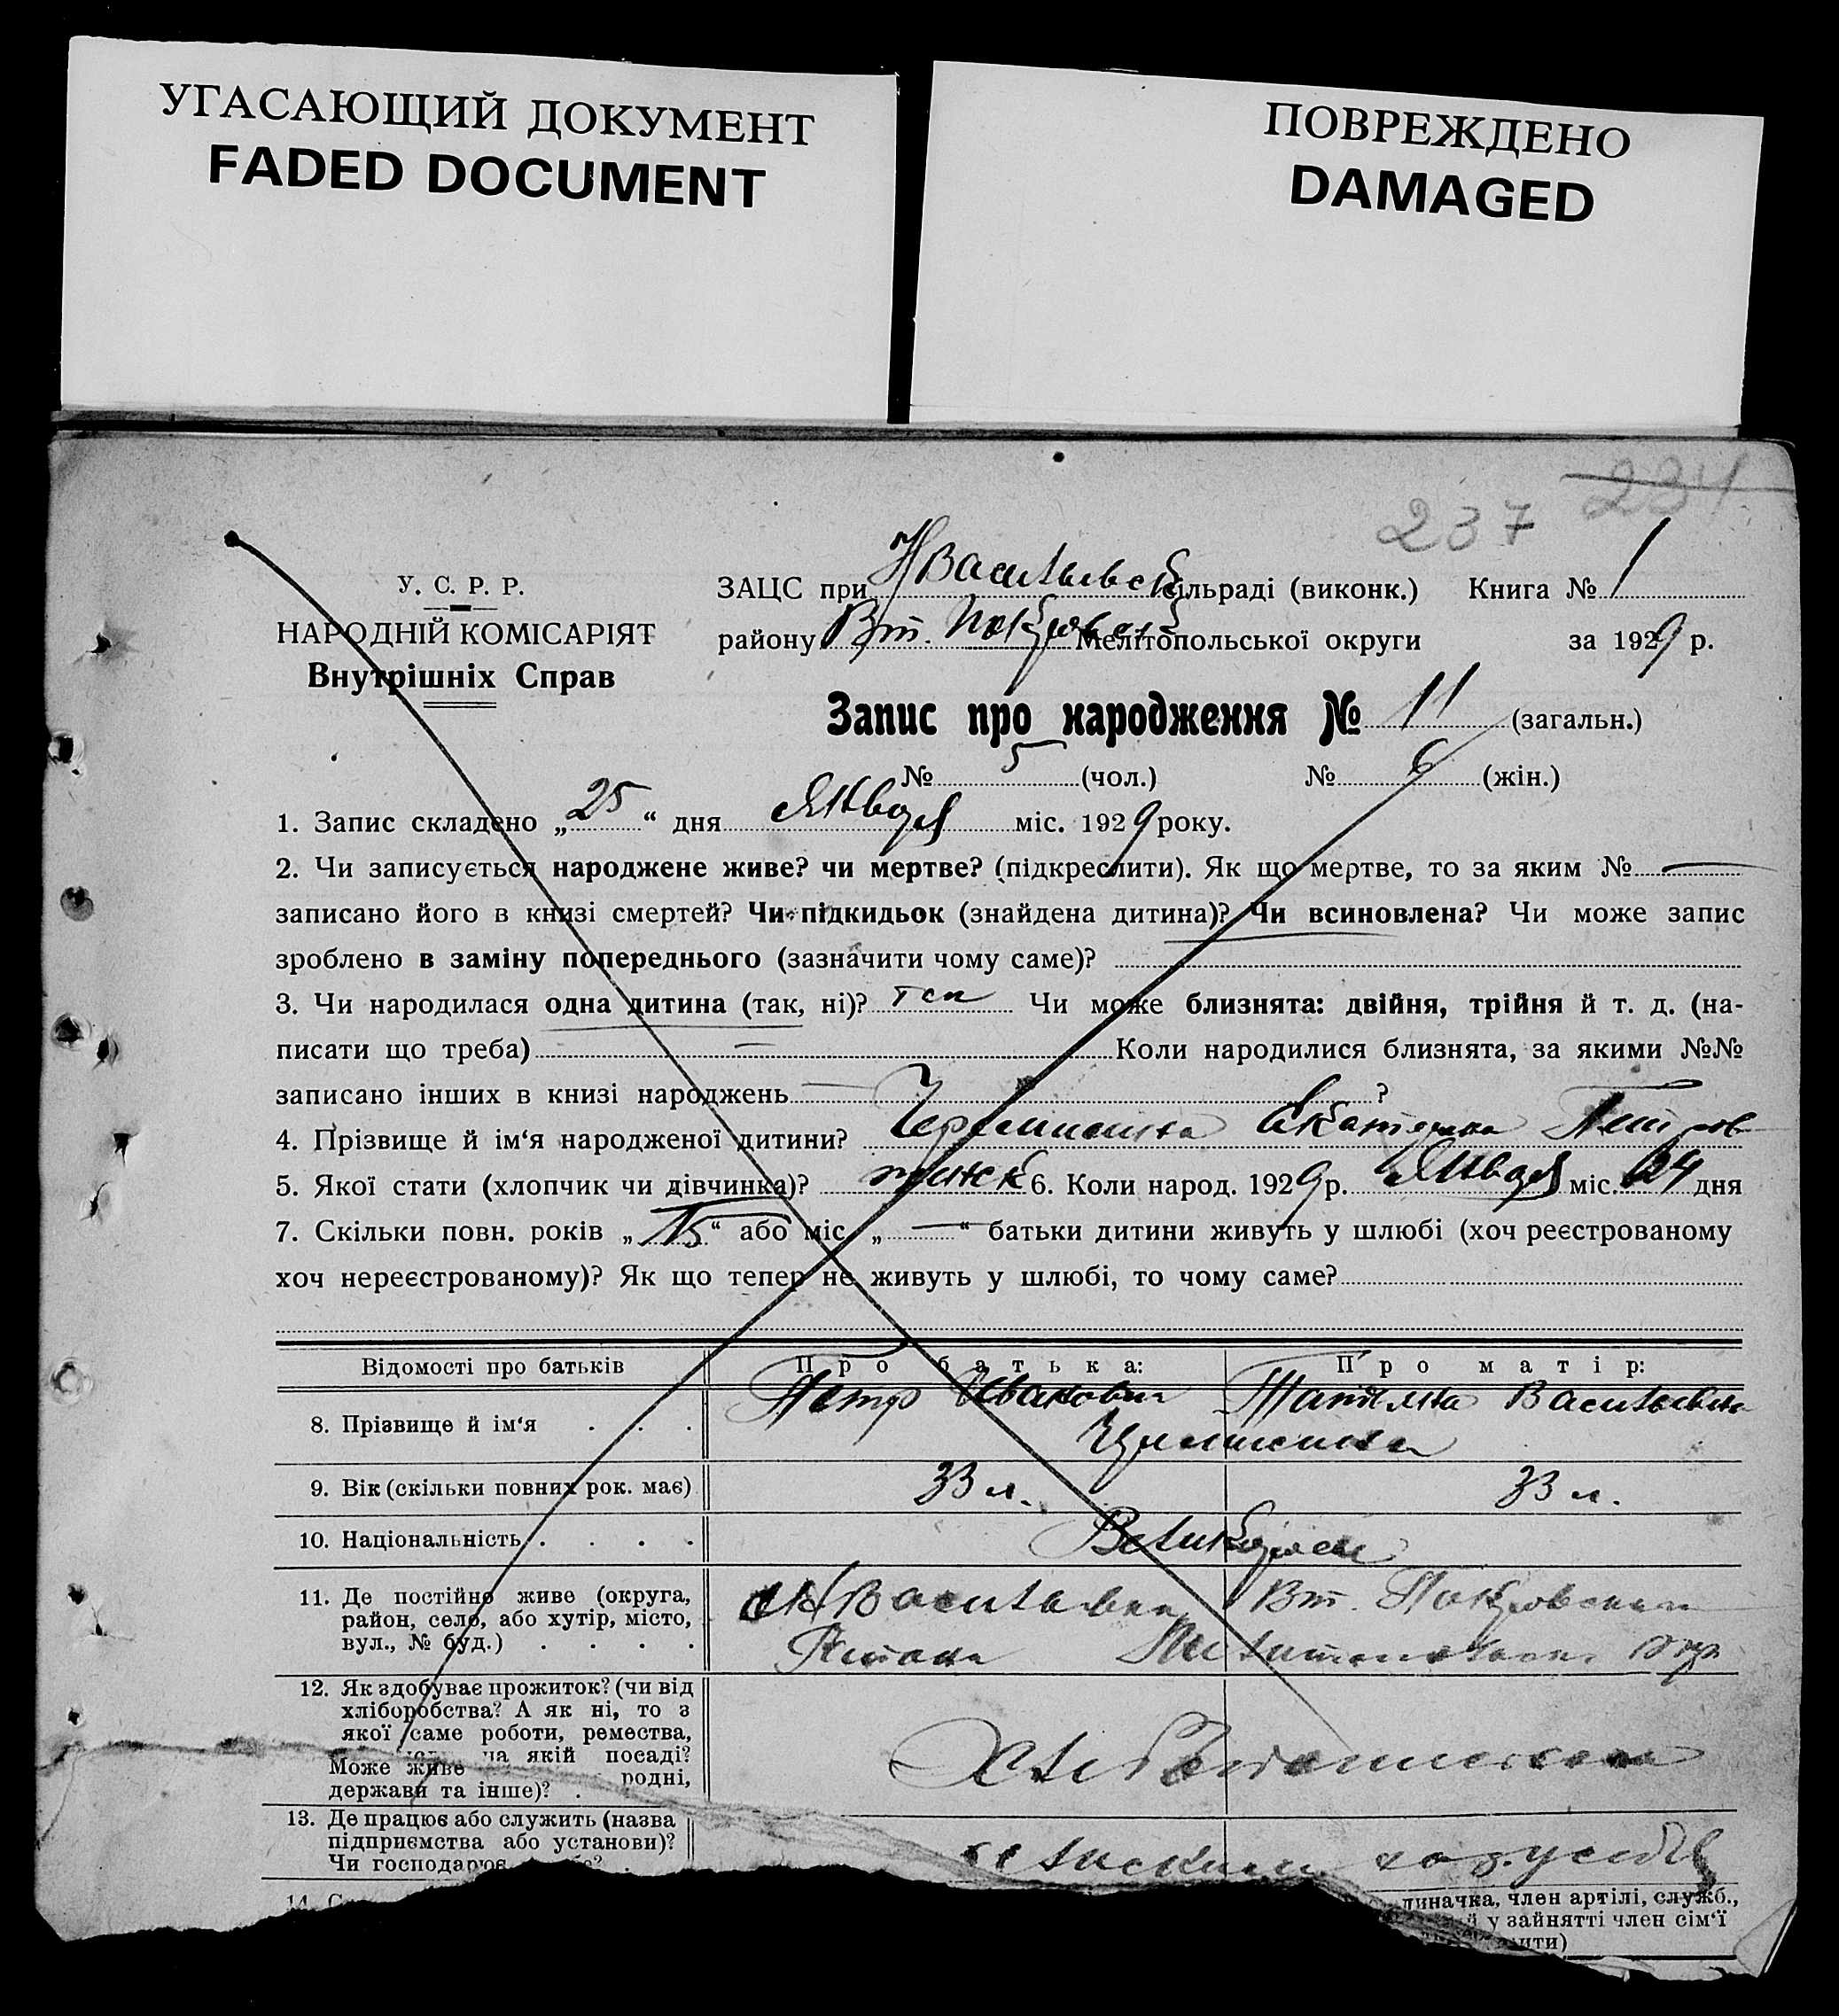 УГАСАЮЩИЙ ДОКУМЕНТ
FADED DOCUMENT
ПОВРЕЖДЕНО
DAMAGED
234
237
У. С. Р. Р.
НАРОДНІЙ КОМІСАРІЯТ
Внутрішніх Справ
ЗАЦС при НВасильевск сільраді (виконк.) Книга № 1
району Вт. Покровск Мелітопольської округи за 1929 р.
Запис про народження № 11 (загальн.)
№ 5 (чол.) № 6 (жін.)
1. Запис складено „25“ дня Января міс. 1929 року.
2. Чи записується народжене живе? чи мертве? (підкреслити). Як що мертве, то за яким № —
записано його в книзі смертей? Чи підкидьок (знайдена дитина)? Чи всиновлена? Чи може запис
зроблено в заміну попереднього (зазначити чому саме)?
3. Чи народилася одна дитина (так, ні)? так Чи може близнята: двійня, трійня й т. д. (на-
писати що треба) — Коли народилися близнята, за якими №№
записано інших в книзі народжень — ?
4. Прізвище й ім‘я народженої дитини? Екатерина Петров
5. Якої стати (хлопчик чи дівчинка)? 6. Коли народ. 1929 р. Января міс. 24 дня
7. Скільки повн. років „15“ або міс. „—“ батьки дитини живуть у шлюбі (хоч реєстрованому
хоч нереєстрованому)? Як що тепер не живуть у шлюбі, то чому саме?
Відомості про батьків Про батька: Про матір:
8. Прізвище й ім‘я . . . Петр Иванович Татьяна Васильевна
9. Вік (скільки повних рок. має) 33 л. 33 л.
10. Національність . . . . Великоросси
11. Де постійно живе (округа,
район, село, або хутір, місто,
вул., № буд.) . . . .
НВасильевка Вт. Покровский
Района Мелитопольск. окр
12. Як здобуває прожиток? (чи від
хліборобства? А як ні, то з
якої саме роботи, ремества,
на якій посаді?
Може живе родні,
держави та інше)? .
Хлебопашество
13. Де працює або служить (назва
підприємства або установи)?
Чи господарює
14. С
диначка, член артілі, служб.,
й у зайнятті член сім‘ї
ити)